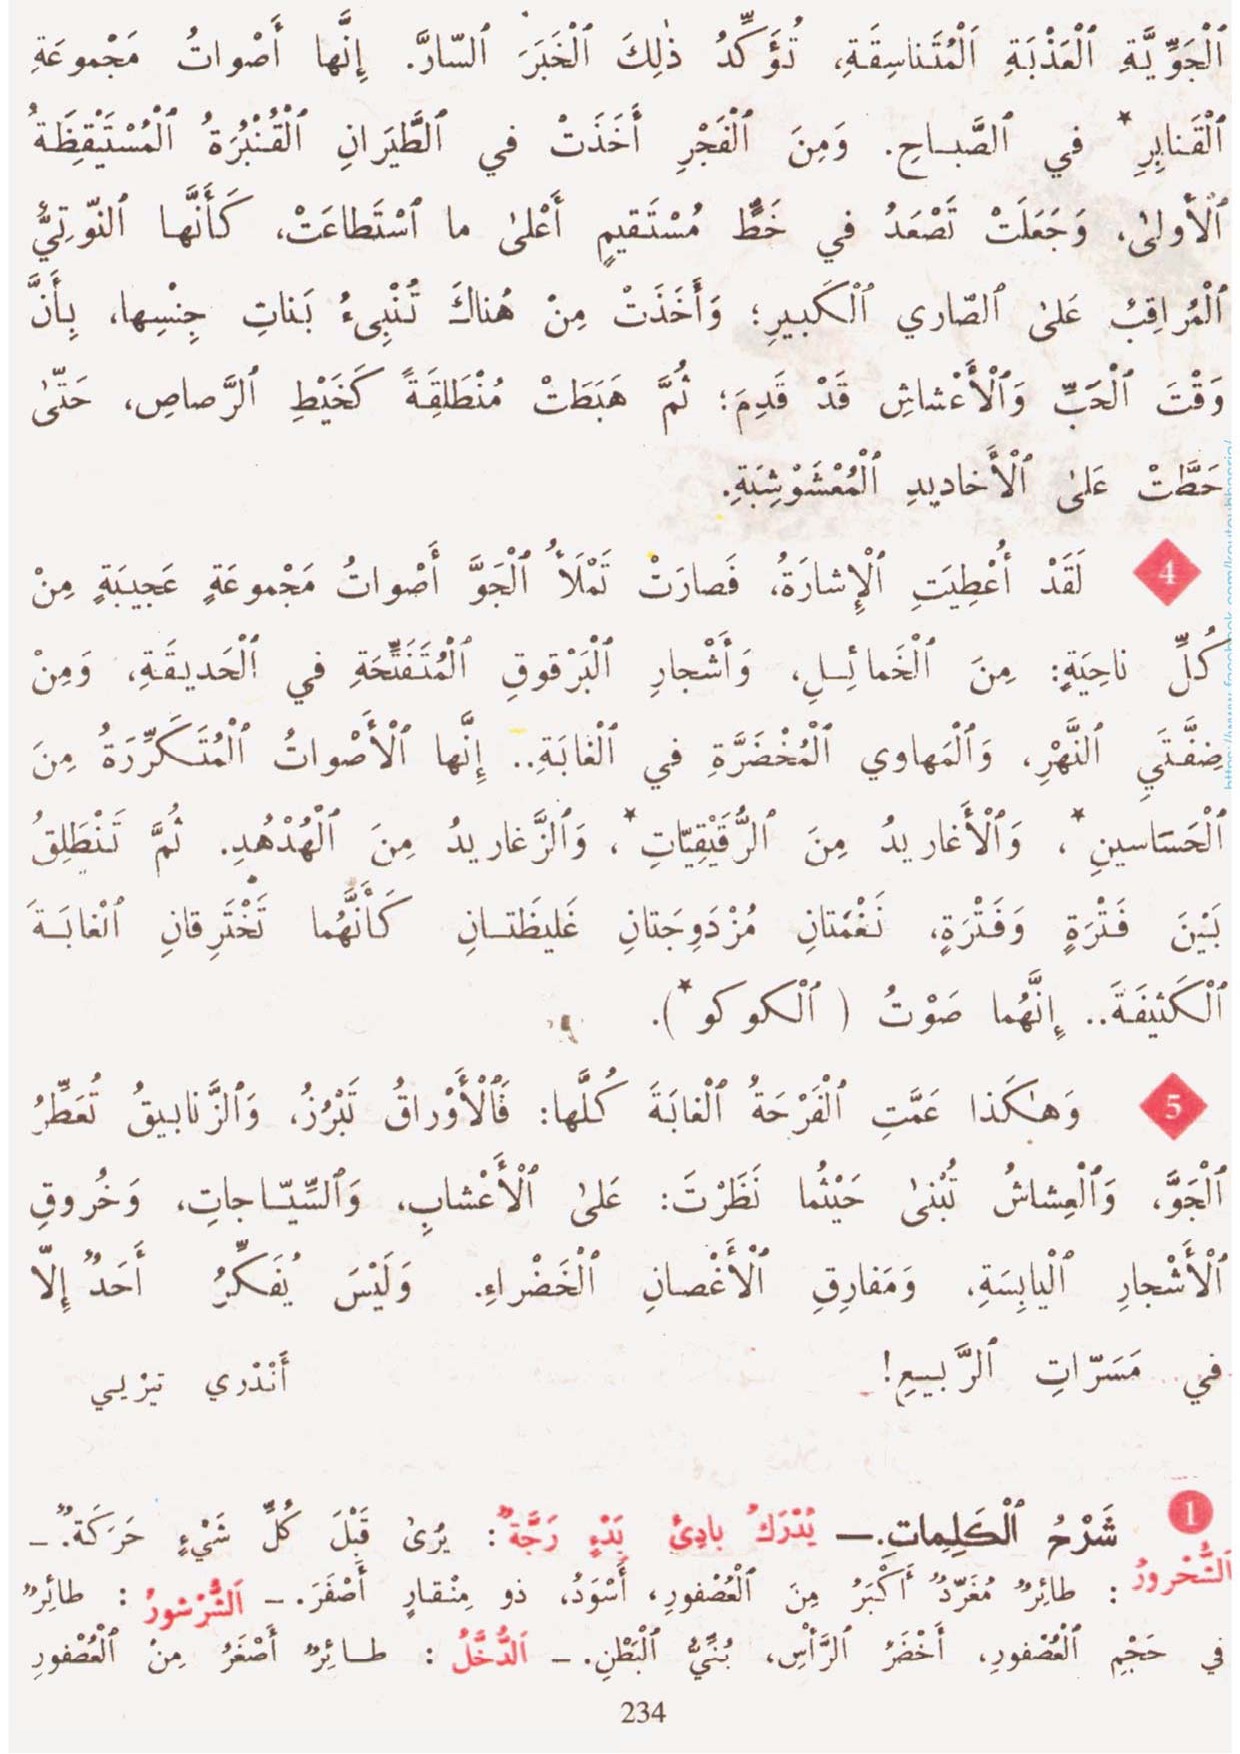 ٱلْجَوِّيَّةِ ٱلْعَذْبَةِ ٱلْمُتَناسِقَةِ، تُؤَكِّدُ ذٰلِكَ ٱلْخَبَرَ ٱلسّارَّ. إِنَّها أَصْواتُ مَجْموعَةِ
ٱلْقَنابِرِ* في ٱلصَّباحِ. وَمِنَ ٱلْفَجْرِ أَخَذَتْ في ٱلطَّيَرانِ ٱلْقُنْبُرَةُ ٱلْمُسْتَيْقِظَةُ
ٱلْأولىٰ، وَجَعَلَتْ تَصْعَدُ في خَطٍّ مُسْتَقيمٍ أَعْلىٰ ما ٱسْتَطاعَتْ، كَأَنَّها ٱلنّوتِيُّ
ٱلْمُراقِبُ عَلىٰ ٱلصّاري ٱلْكَبيرِ؛ وَأَخَذَتْ مِنْ هُناكَ تُنْبِىءُ بَناتِ جِنْسِها، بِأَنَّ
وَقْتَ ٱلْحَبِّ وَٱلْأَعْشاشِ قَدْ قَدِمَ؛ ثُمَّ هَبَطَتْ مُنْطَلِقَةً كَخَيْطِ ٱلرَّصاصِ، حَتّىٰ
حَطَّتْ عَلىٰ ٱلْأَخاديدِ ٱلْمُعْشَوْشِبَةِ.
4 لَقَدْ أُعْطِيَتِ ٱلْإِشارَةُ، فَصارَتْ تَمْلَأُ ٱلْجَوَّ أَصْواتُ مَجْموعَةٍ عَجيبَةٍ مِنْ
كُلِّ ناحِيَةٍ: مِنَ ٱلْخَمائِلِ، وَأَشْجارِ ٱلْبَرْقوقِ ٱلْمُتَفَتِّحَةِ في ٱلْحَديقَةِ، وَمِنْ
ضِفَّتَيِ ٱلنَّهْرِ، وَٱلْمَهاوي ٱلْمُخْضَرَّةِ في ٱلْغابَةِ.. إِنَّها ٱلْأَصْواتُ ٱلْمُتَكَرِّرَةُ مِنَ
ٱلْحَسَاسينِ*، وَٱلْأَغاريدُ مِنَ ٱلرُّقَيْقِيّاتِ*، وَٱلزَّغاريدُ مِنَ ٱلْهُدْهُدِ. ثُمَّ تَنْطَلِقُ
بَيْنَ فَتْرَةٍ وَفَتْرَةٍ، نَغْمَتانِ مُزْدَوِجَتانِ غَليظَتانِ كَأَنَّهُما تَخْتَرِقانِ ٱلْغابَةَ
ٱلْكَثيفَةَ.. إِنَّهُما صَوْتُ ( ٱلْكوكو*).
5 وَهٰكَذا عَمَّتِ ٱلْفَرْحَةُ ٱلْغابَةَ كُلَّها: فَٱلْأَوْراقُ تَبْرُزُ، وَٱلزَّنابيقُ تُعَطِّرُ
ٱلْجَوَّ، وَٱلْعِشاشُ تُبْنىٰ حَيْثُما نَظَرْتَ: عَلىٰ ٱلْأَعْشابِ، وَٱلسِّيّاجاتِ، وَخُروقِ
ٱلْأَشْجارِ ٱلْيابِسَةِ، وَمَفارِقِ ٱلْأَغْصانِ ٱلْخَضْراءِ. وَلَيْسَ يُفَكِّرُ أَحَدٌ إِلّا
في مَسَرّاتِ ٱلرَّبيعِ!
أَنْدْري تيرْيي
1 شَرْحُ ٱلْكَلِماتِ.— يُدْرَكُ بادِئَ بَدْءٍ رَجَّةٌ: يُرىٰ قَبْلَ كُلِّ شَيْءٍ حَرَكَةٌ. –
ٱلشُّحْرورُ : طائِرٌ مُغَرِّدٌ أَكْبَرُ مِنَ ٱلْعُصْفورِ، أَسْوَدُ، ذو مِنْقارٍ أَصْفَرَ. – ٱلشُّرْشورُ : طائِرٌ
في حَجْمِ ٱلْعُصْفورِ، أَخْضَرُ ٱلرَّأْسِ، بُنِّيُّ ٱلْبَطْنِ. – ٱلدُّخَّلُ : طائِرٌ أَصْغَرُ مِنْ ٱلْعُصْفورِ
234